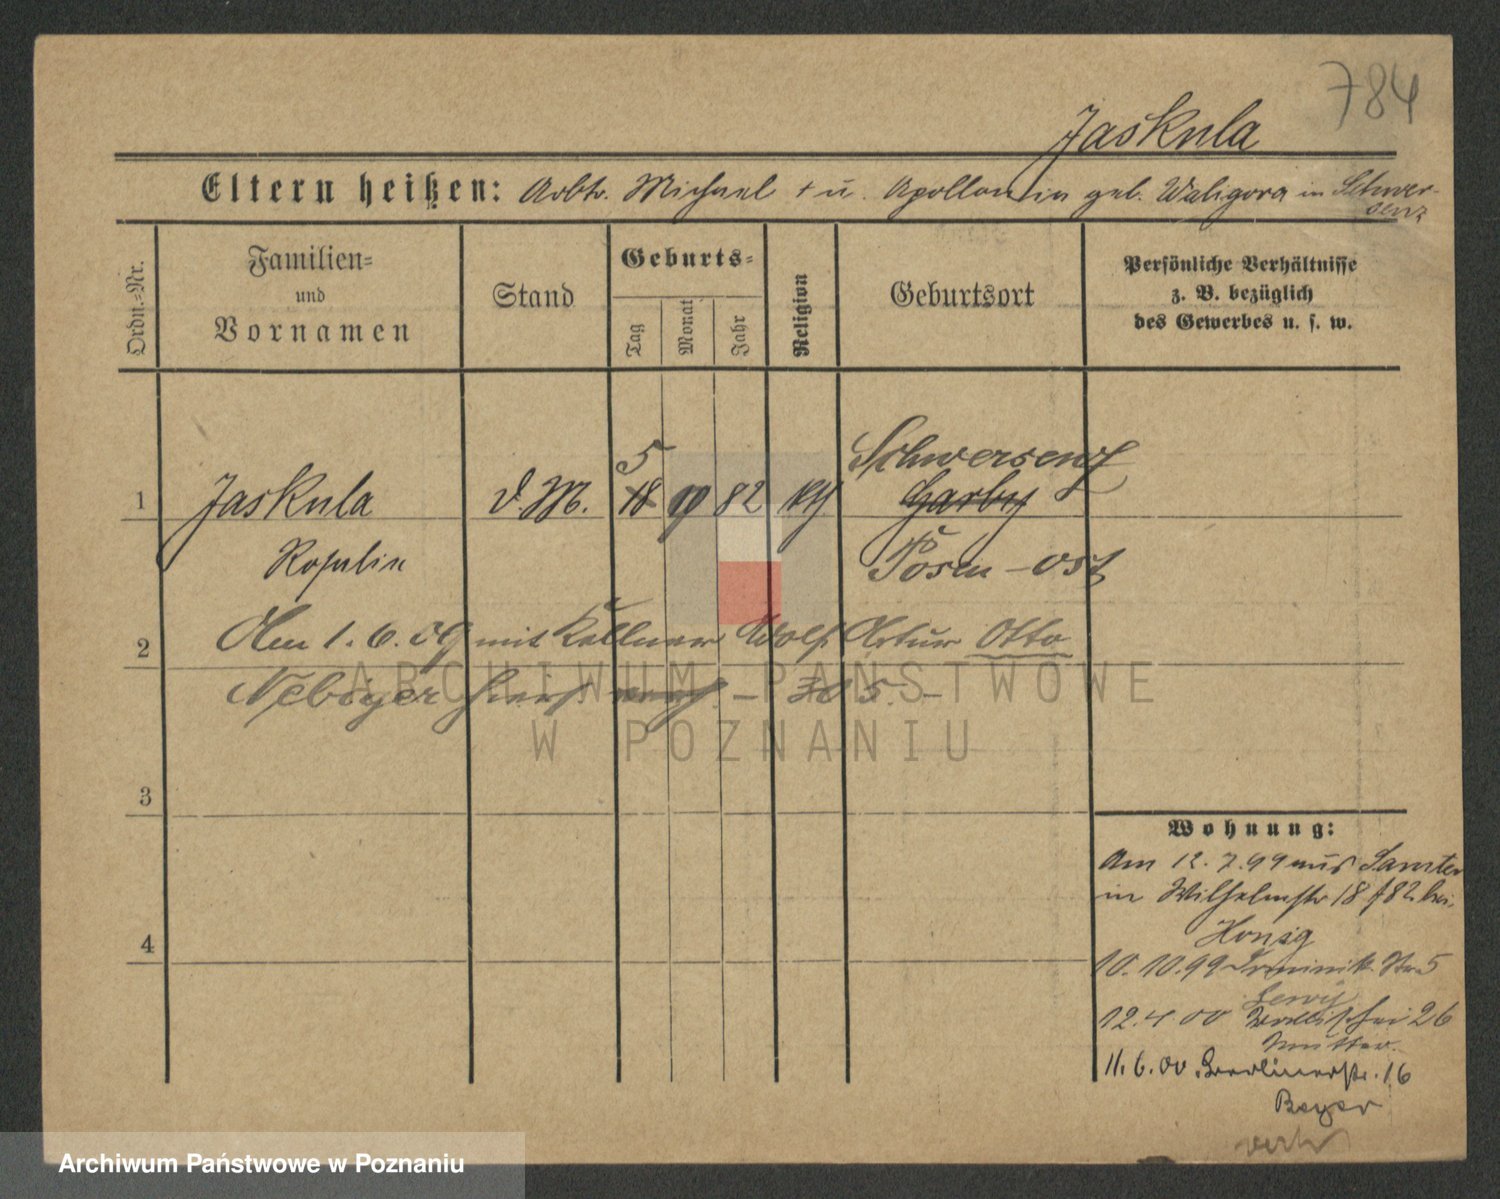 784
Jaskula
Eltern heißen: Arbtr. Michael † u. Apollonia geb. Waligora in Schwer-
senz
Ordn.-Nr.
Familien-
und
Vornamen
Stand
Geburts-
Tag
Monat
Jahr
Religion
Geburtsort
Persönliche Verhältnisse
z. B. bezüglich
des Gewerbes u. s. w.
5
Schwersenz
1 Jaskula d. M. 18 82 kth Garby
Rosalie Posen-Ost
2 Am 1. 6. 09 mit Kellner Adolf Artur Otto
Nebiger hier 305.
3
4
Wohnung:
Am 12. 7. 99 aus Samter
in Wilhelmstr 18 f 82 bei
Honig
10. 10. 99 Dominik. Str. 5
Lewy
12. 4. 00 Wallischei 26
Mutter.
11. 6. 00. Berlinerstr. 16
Beyer
verh
ARCHIWUM PAŃSTWOWE
W POZNANIU
Archiwum Państwowe w Poznaniu